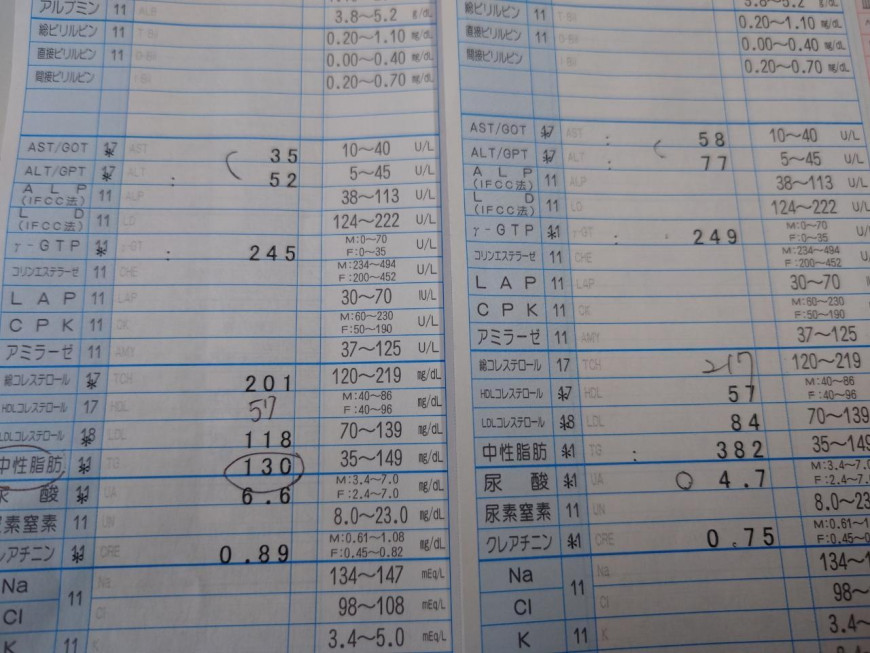 アルブミン 11 ALB 3.8〜5.2 g/dL
総ビリルビン 11 T-Bil 0.20〜1.10 mg/dL
直接ビリルビン 11 D-Bil 0.00〜0.40 mg/dL
間接ビリルビン I-Bil 0.20〜0.70 mg/dL
AST/GOT 17 * AST 35 10〜40 U/L
ALT/GPT 17 * ALT : 52 5〜45 U/L
ALP (IFCC法) 11 ALP 38〜113 U/L
LD (IFCC法) 11 LD 124〜222 U/L
γ-GTP 11 * γ-GT : 245 M:0〜70 F:0〜35 U/L
コリンエステラーゼ 11 CHE M:234〜494 F:200〜452 U/L
LAP 11 LAP 30〜70 IU/L
CPK 11 CK M:60〜230 F:50〜190 U/L
アミラーゼ 11 AMY 37〜125 U/L
総コレステロール 17 * TCH 201 120〜219 mg/dL
HDLコレステロール 17 HDL 57 M:40〜86 F:40〜96 mg/dL
LDLコレステロール 18 * LDL 118 70〜139 mg/dL
中性脂肪 11 * TG 130 35〜149 mg/dL
尿酸 11 * UA 6.6 M:3.4〜7.0 F:2.4〜7.0 mg/dL
尿素窒素 11 UN 8.0〜23.0 mg/dL
クレアチニン 11 * CRE 0.89 M:0.61〜1.08 F:0.45〜0.82 mg/dL
Na 11 Na 134〜147 mEq/L
Cl Cl 98〜108 mEq/L
K 11 K 3.4〜5.0 mEq/L
3.8〜5.2 g/dL
総ビリルビン 11 T-Bil 0.20〜1.10 mg/dL
直接ビリルビン 11 D-Bil 0.00〜0.40 mg/dL
間接ビリルビン I-Bil 0.20〜0.70 mg/dL
AST/GOT 17 * AST : 58 10〜40 U/L
ALT/GPT 17 * ALT : 77 5〜45 U/L
ALP (IFCC法) 11 ALP 38〜113 U/L
LD (IFCC法) 11 LD 124〜222 U/L
γ-GTP 11 * γ-GT : 249 M:0〜70 F:0〜35 U/L
コリンエステラーゼ 11 CHE M:234〜494 F:200〜452 U/L
LAP 11 LAP 30〜70 IU
CPK 11 CK M:60〜230 F:50〜190 U
アミラーゼ 11 AMY 37〜125
総コレステロール 17 TCH 217 120〜219
HDLコレステロール 17 * HDL 57 M:40〜86 F:40〜96
LDLコレステロール 18 * LDL 84 70〜139
中性脂肪 11 * TG : 382 35〜149
尿酸 11 * UA 4.7 M:3.4〜7.0 F:2.4〜7.
尿素窒素 11 UN 8.0〜23
クレアチニン 11 * CRE 0.75 M:0.61〜1 F:0.45〜0
Na 11 Na 134〜1
Cl Cl 98〜
K 11 K 3.4〜